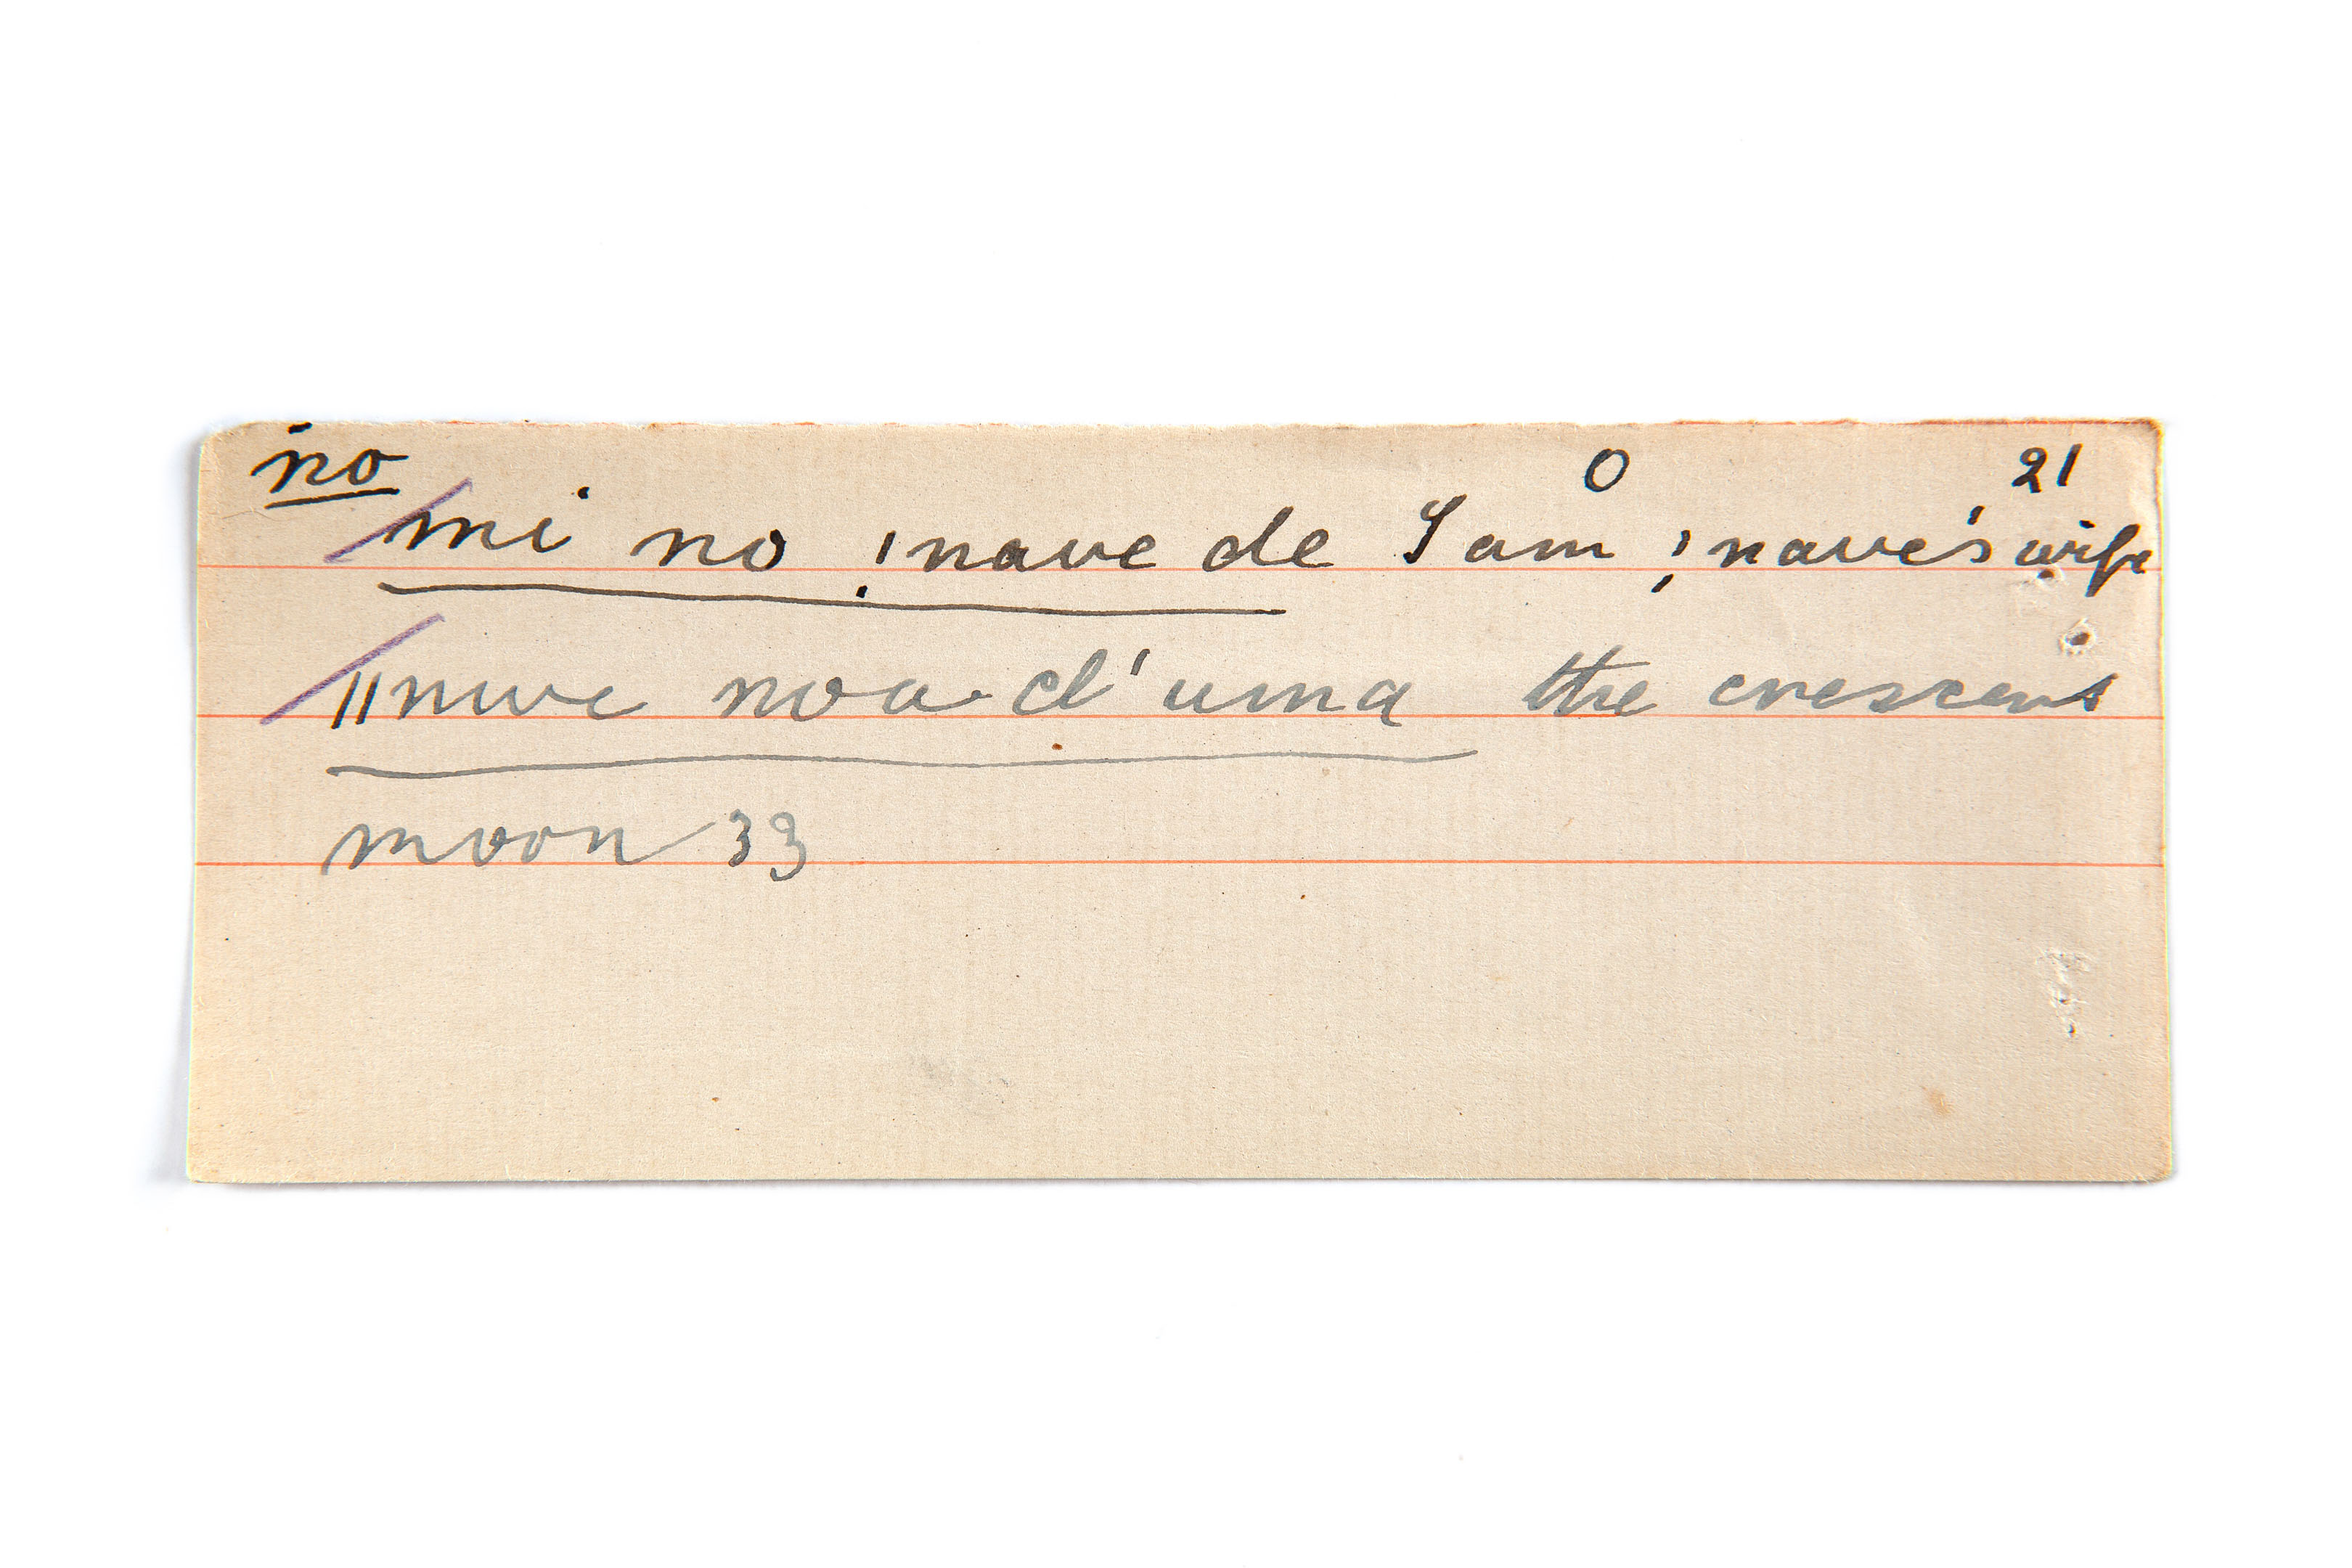 no
0 21
mi no !nave de I am !nave's wife
ǁnwe noa d'uma the crescent
moon 33